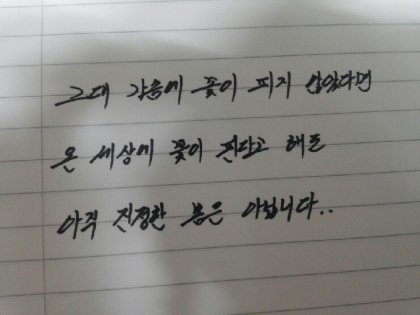 그대 가슴에 꽃이 피지 않았다면
온 세상에 꽃이 핀다고 해도
아직 진정한 봄은 아닙니다..